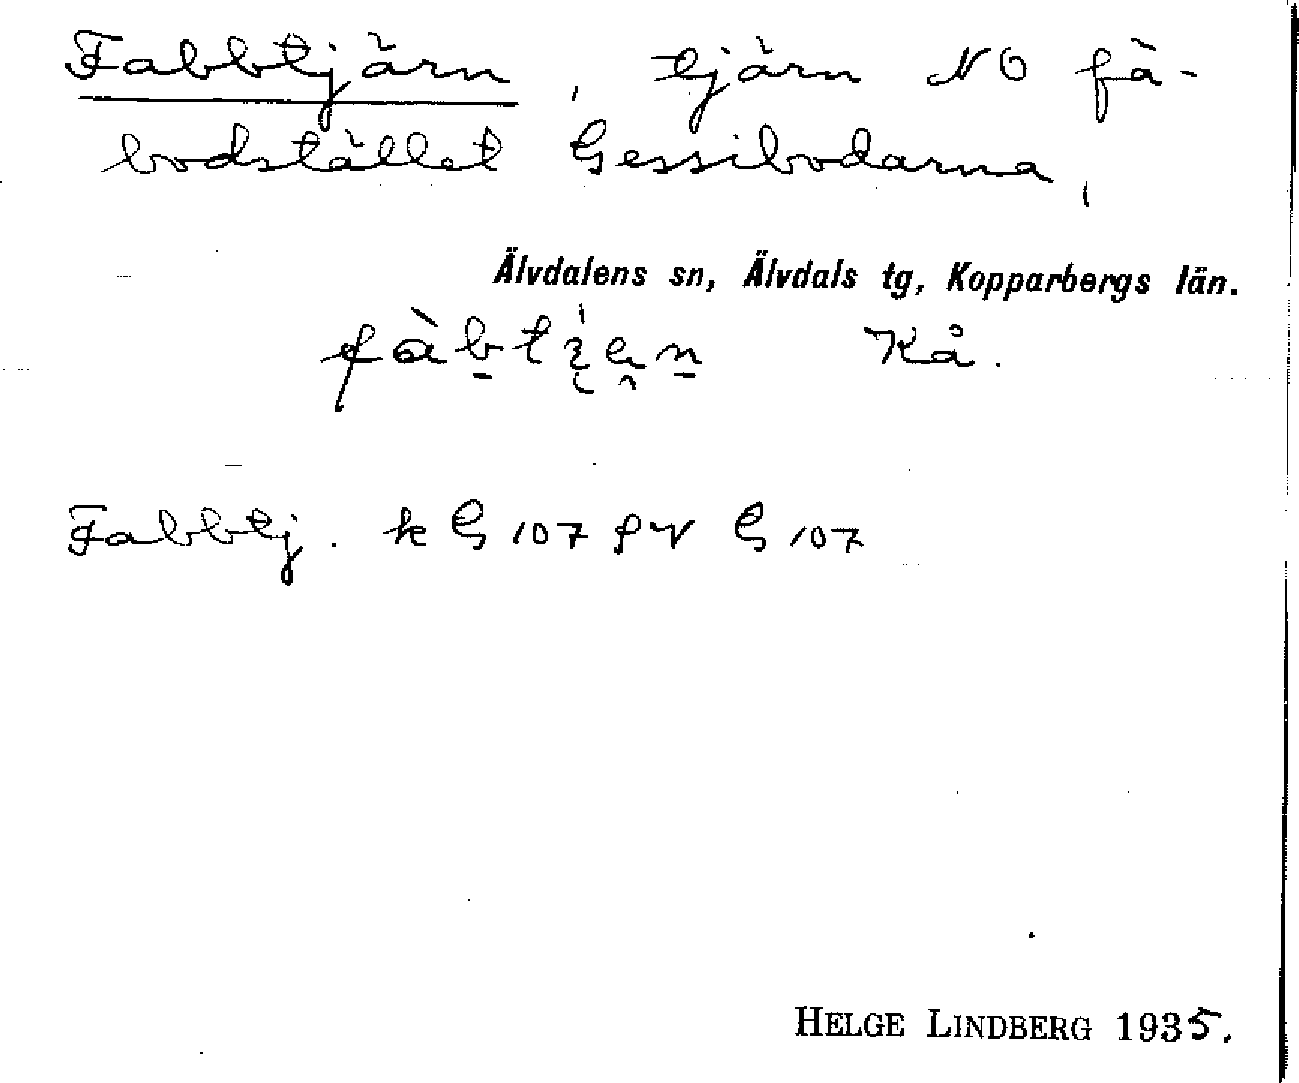 Fabbtjärn, tjärn NO fä-
bodstället Gessibodarna,
Älvdalens sn, Älvdals tg, Kopparbergs län.
Kå.
Fabbtj. k G 107 pr G 107
HELGE LINDBERG 1935.